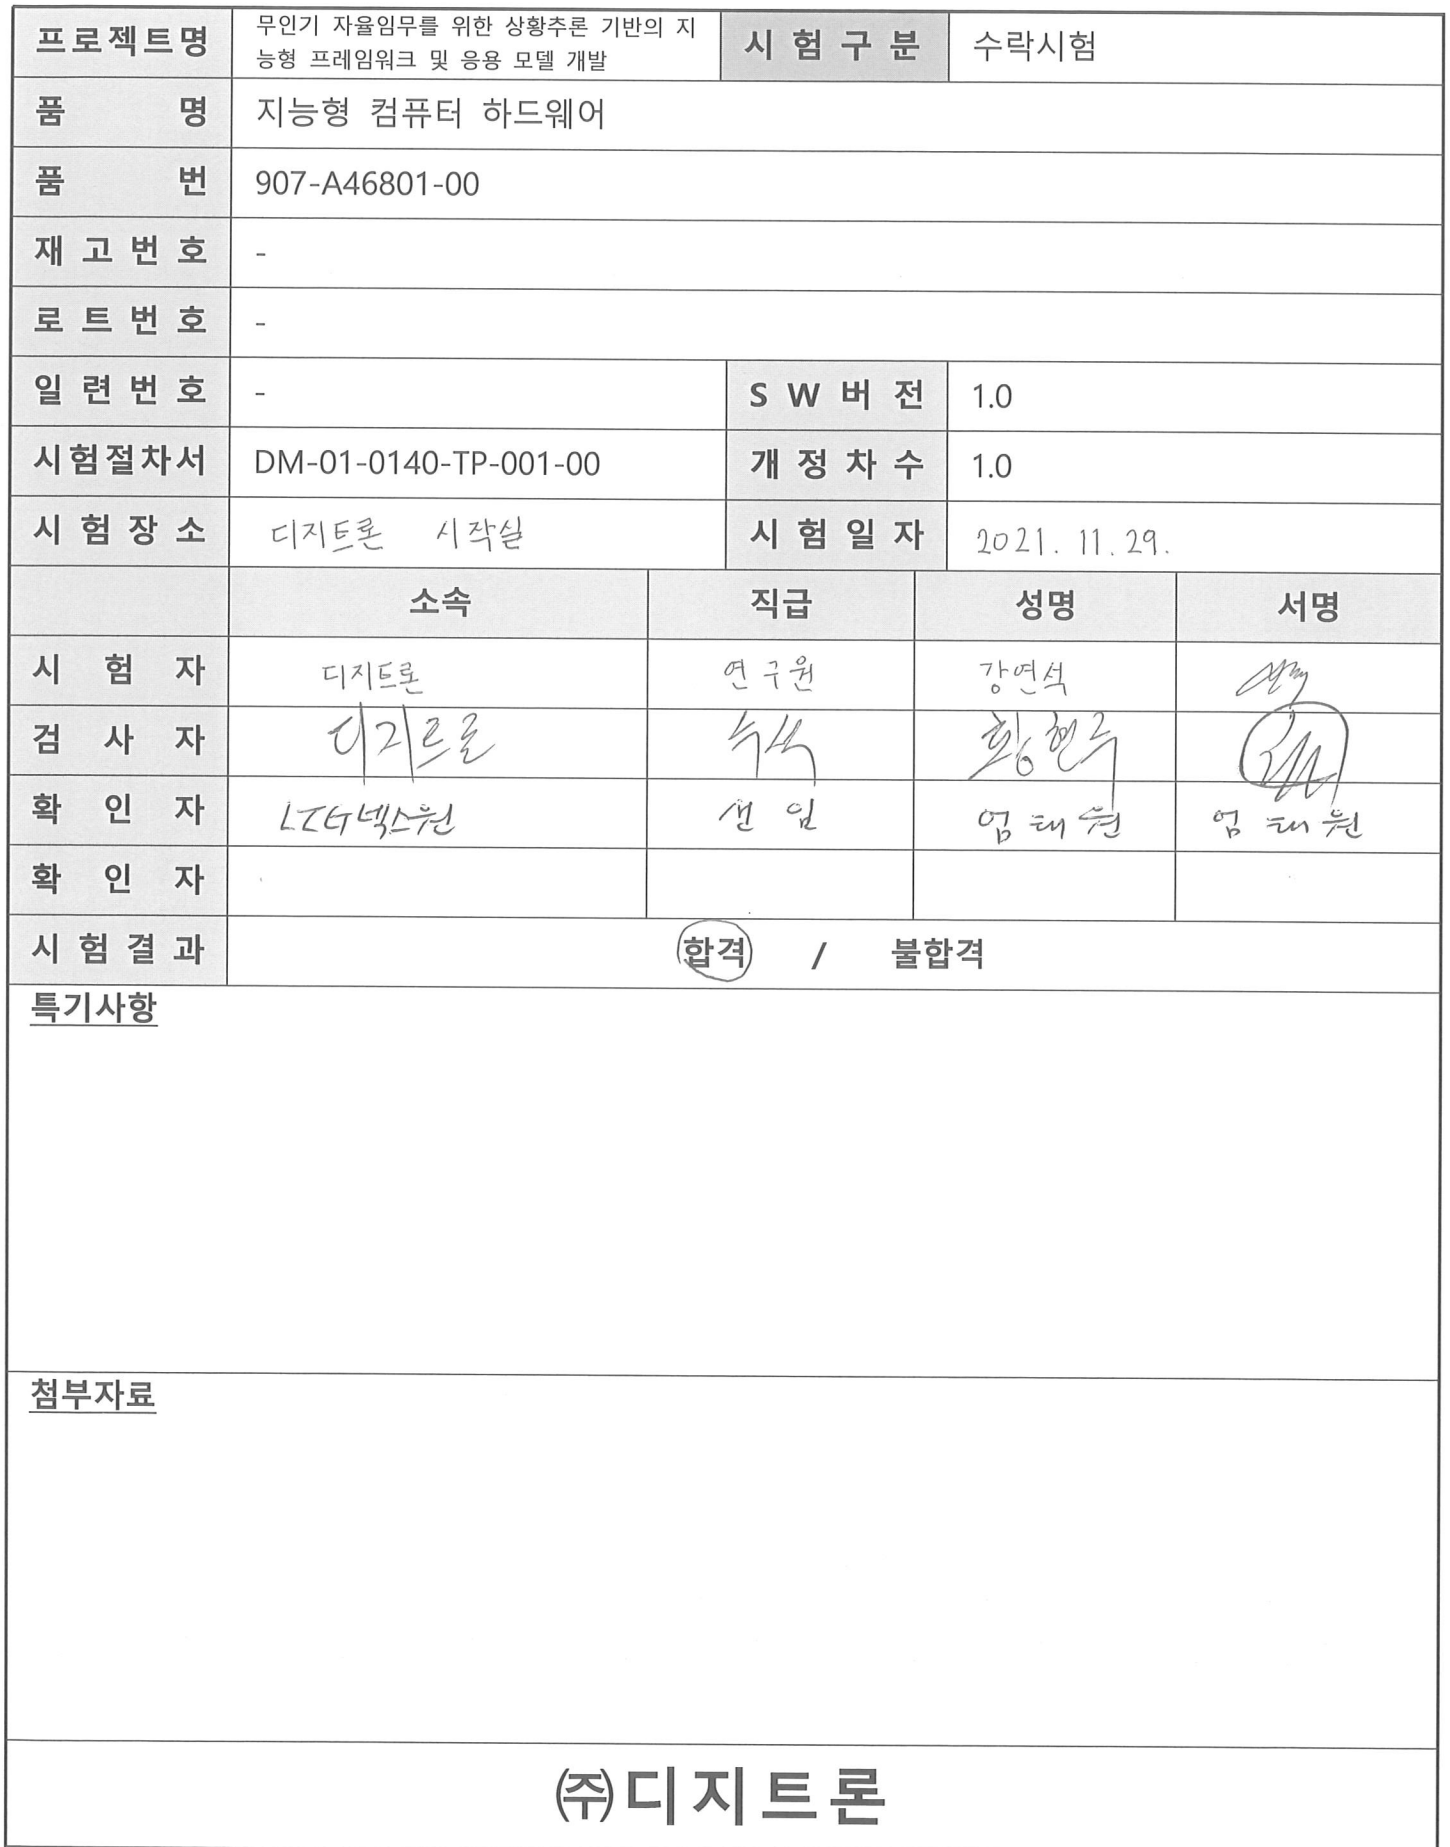 프로젝트명 무인기 자율임무를 위한 상황추론 기반의 지 시 험 구 분 수락시험
능형 프레임워크 및 응용 모델 개발
품 명 지능형 컴퓨터 하드웨어
품 번 907-A46801-00
재 고 번 호 -
로 트 번 호 -
일 련 번 호 - S W 버 전 1.0
시험절차서 DM-01-0140-TP-001-00 개 정 차 수 1.0
시 험 장 소 디지트론 시작실 시 험 일 자 2021. 11. 29.
소속 직급 성명 서명
시 험 자 디지트론 연구원 강연석
검 사 자 디지트론 수석 황현주
확 인 자 LIG넥스원 선임 엄태원 엄태원
확 인 자
시 험 결 과 합격 / 불합격
특기사항
첨부자료
㈜디지트론